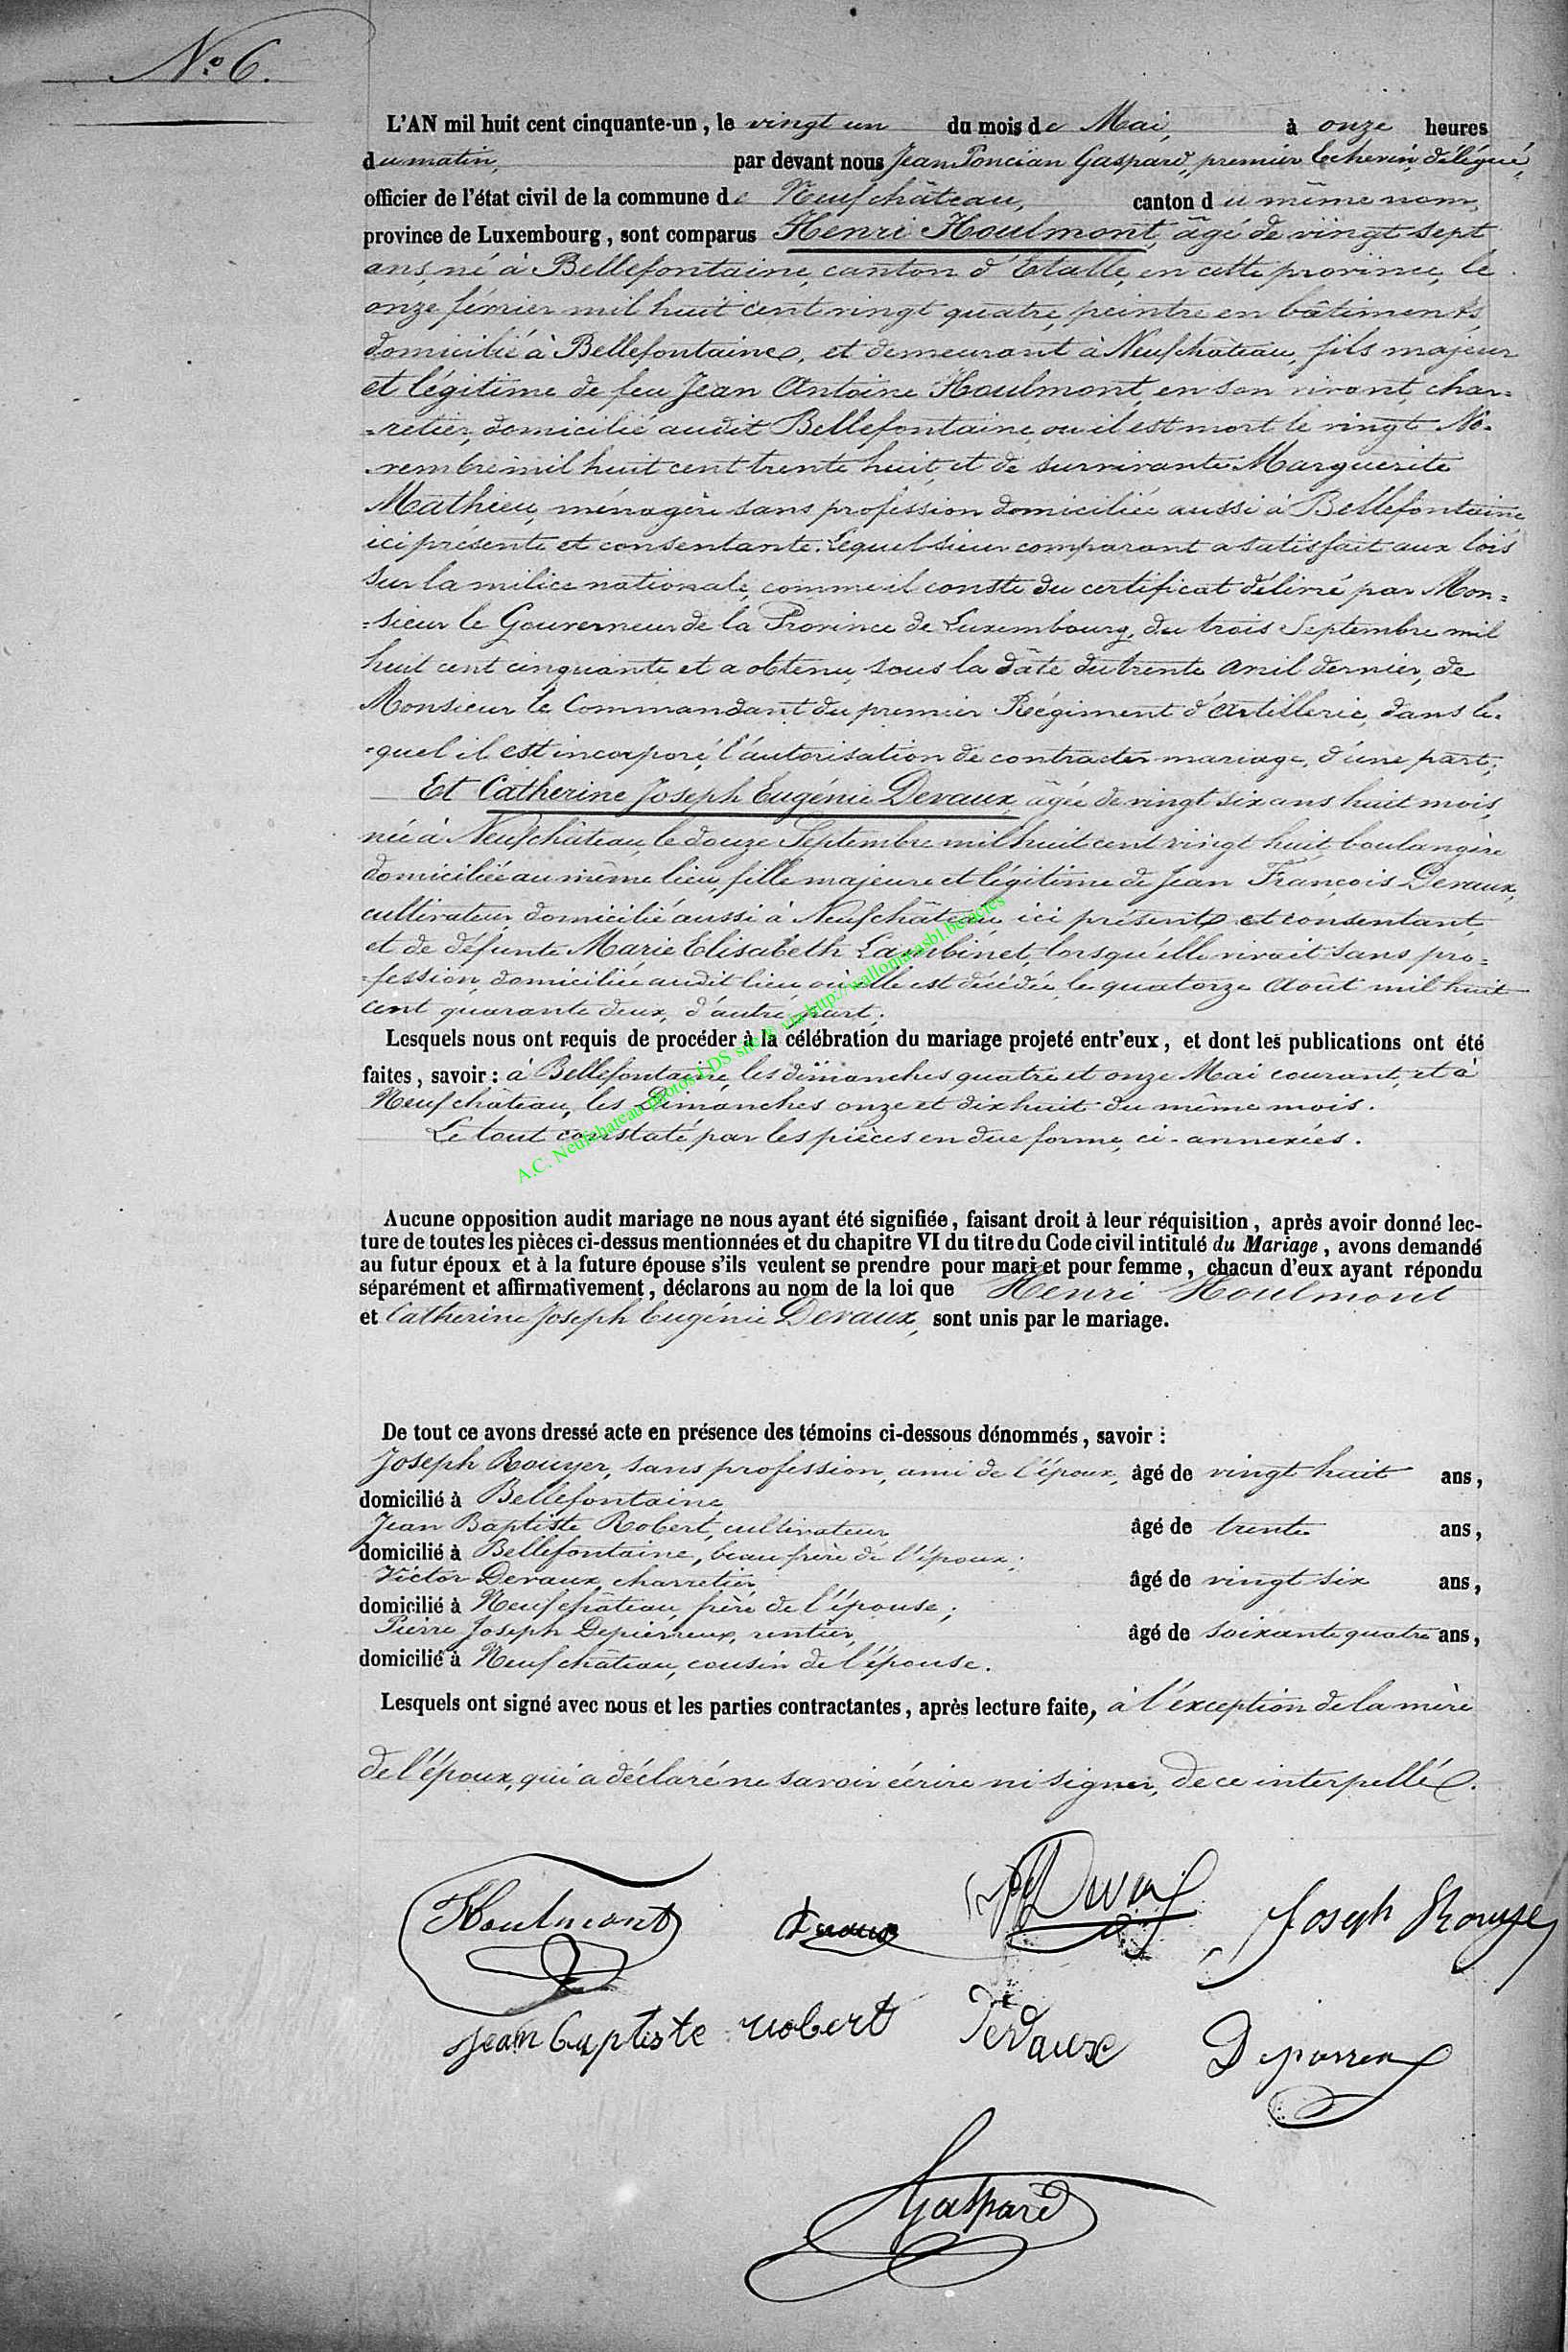 N.o 6.
L'AN mil huit cent cinquante-un, le vingt un du mois de Mai, à onze heures
du matin, par devant nous Jean Poncian Gaspard, premier Echevin, délégué,
officier de l'état civil de la commune de Neufchâteau, canton du même nom,
province de Luxembourg, sont comparus Henri Houlmont, âgé de vingt sept
ans, né à Bellefontaine, canton d'Etalle, en cette province, le
onze février mil huit cent vingt quatre, peintre en bâtiments,
domicilié à Bellefontaine, et demeurant à Neufchâteau, fils majeur
et légitime de feu Jean Antoine Houlmont, en son vivant, char=
=retier, domicilié audit Bellefontaine, ou il est mort le vingt No=
=vembre mil huit cent trente huit, et de survivante Marguerite
Mathieu, ménagère sans profession domiciliée aussi à Bellefontaine
ici présente et consentante. Lequel sieur comparant a satisfait aux lois
sur la milice nationale, comme il conste du certificat délivré par Mon=
=sieur le Gouverneur de la Province de Luxembourg, du trois Septembre mil
huit cent cinquante, et a obtenu, sous la date du trente avril dernier, de
Monsieur le Commandant du premier Régiment d'Artillerie, dans le=
=quel il est incorporé, l'autorisation de contracter mariage, d'une part;
Et Catherine Joseph Eugénie Devaux, âgée de vingt six ans huit mois,
née à Neufchâteau, le douze Septembre mil huit cent vingt huit, boulangère
domiciliée au même lieu, fille majeure et légitime de Jean François Devaux,
cultivateur, domicilié aussi à Neufchâteau, ici présent et consentant,
et de défunte Marie Elisabeth Lambinet, lorsqu'elle vivait sans pro=
=fession, domiciliée audit lieu, où elle est décédée, le quatorze Août mil huit
cent quarante deux, d'autre part;
Lesquels nous ont requis de procéder à la célébration du mariage projeté entr'eux, et dont les publications ont été
faites, savoir: à Bellefontaine, les dimanches quatre et onze Mai courant, et à
Neufchateau, les Dimanches onze et dix huit du même mois.
Le tout constaté par les pièces en due forme, ci-annexées.
A.C. Neufchateau photos LDS via http://wallonia-asbl.be/actes
Aucune opposition audit mariage ne nous ayant été signifiée, faisant droit à leur réquisition, après avoir donné lec-
ture de toutes les pièces ci-dessus mentionnées et du chapitre VI du titre du Code civil intitulé du Mariage, avons demandé
au futur époux et à la future épouse s'ils veulent se prendre pour mari et pour femme, chacun d'eux ayant répondu
séparément et affirmativement, déclarons au nom de la loi que Henri Houlmont
et Catherine Joseph Eugénie Devaux, sont unis par le mariage.
De tout ce avons dressé acte en présence des témoins ci-dessous dénommés, savoir:
Joseph Rouyer, sans profession, ami de l'époux, âgé de vingt huit ans,
domicilié à Bellefontaine,
Jean Baptiste Robert, cultivateur, âgé de trente ans,
domicilié à Bellefontaine, beau frère de l'époux;
Victor Devaux, charretier, âgé de vingt six ans,
domicilié à Neufchâteau, frère de l'épouse;
Pierre Joseph Depierreux, rentier, âgé de soixante quatre ans,
domicilié à Neufchâteau, cousin de l'épouse.
Lesquels ont signé avec nous et les parties contractantes, après lecture faite, à l'exception de la mère
de l'époux, qui a déclaré ne savoir écrire ni signer, de ce interpellée.
Houlmont Joseph Rouyer
Jean baptiste robert Devaux
Gaspard